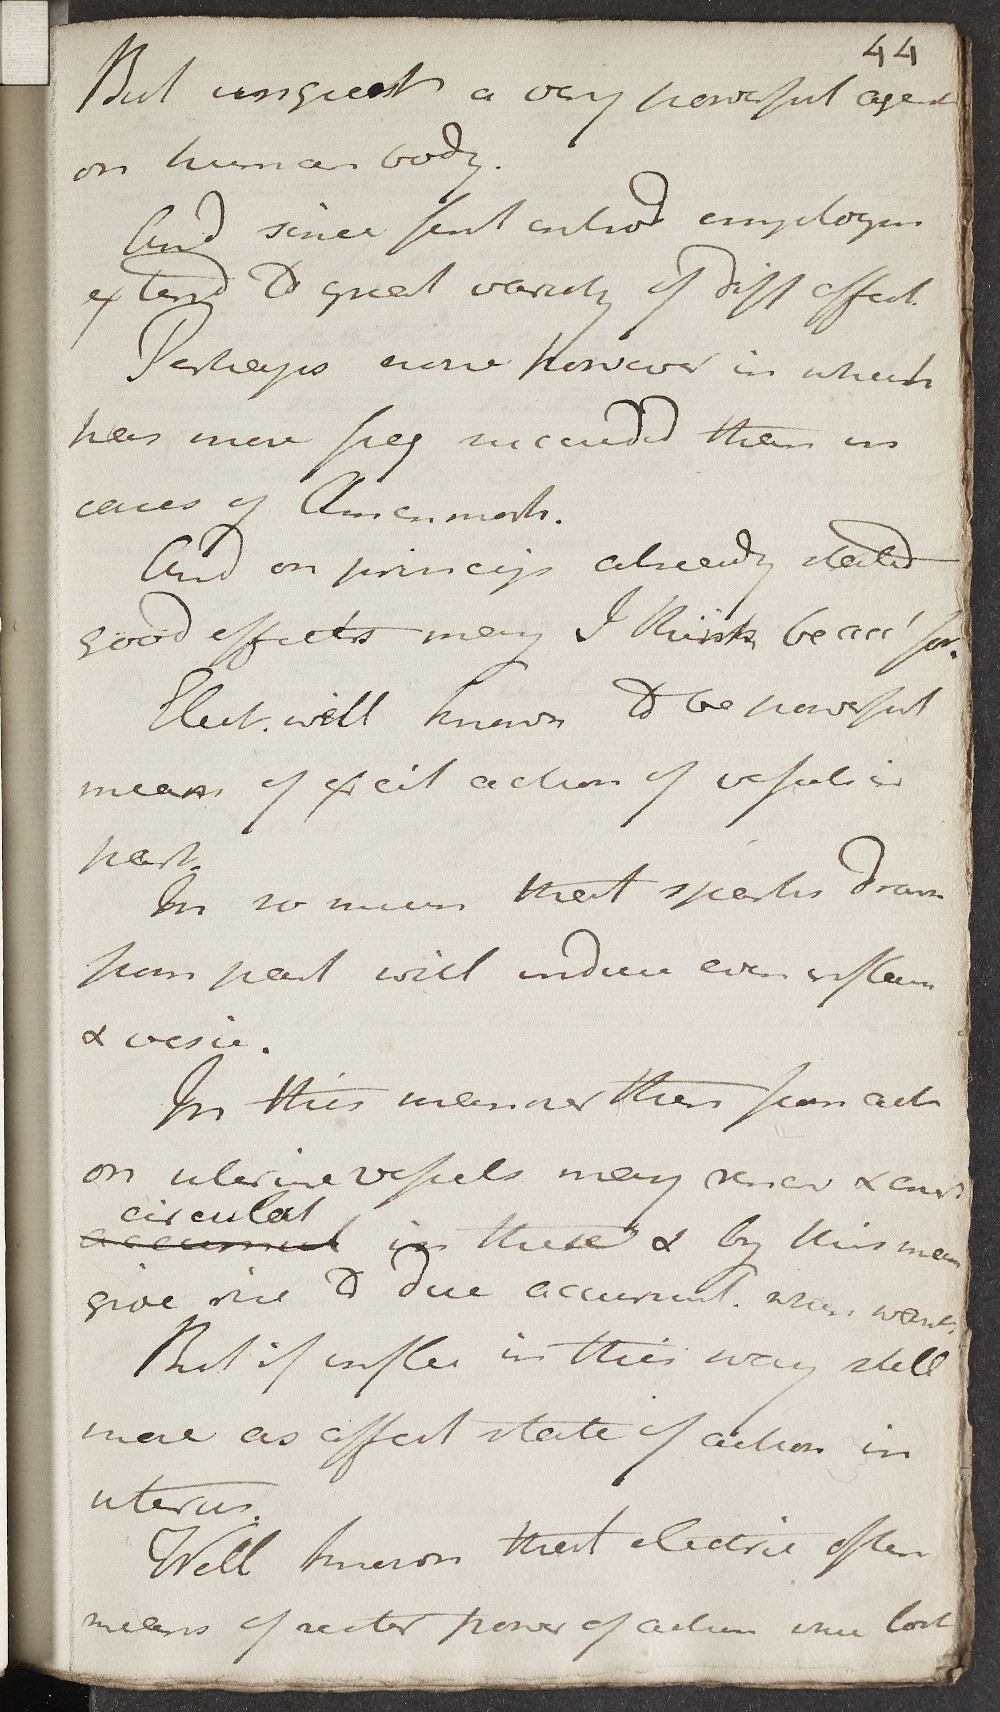 44
But unquest a very powerful agent
on human body.
And since first introd employm
extend to great variety of diff affect.
Perhaps none however in which
has more freq succeeded than in
cases of Amenorrh.
And on princip already stated
good effects may I think be acc' for.
Elect. well known to be powerful
means of excit action of vessels in
part.
In so much that sparks drawn
from part will induce even inflam
& vesic.
In this manner then from act
on uterine vessels may renew &
circulat
accumul in these & by this mean
give rise to due accumul. when want
But if influ in this way still
more as affect state of action in
uterus.
Well known that electric often
means of restor power of action when lost